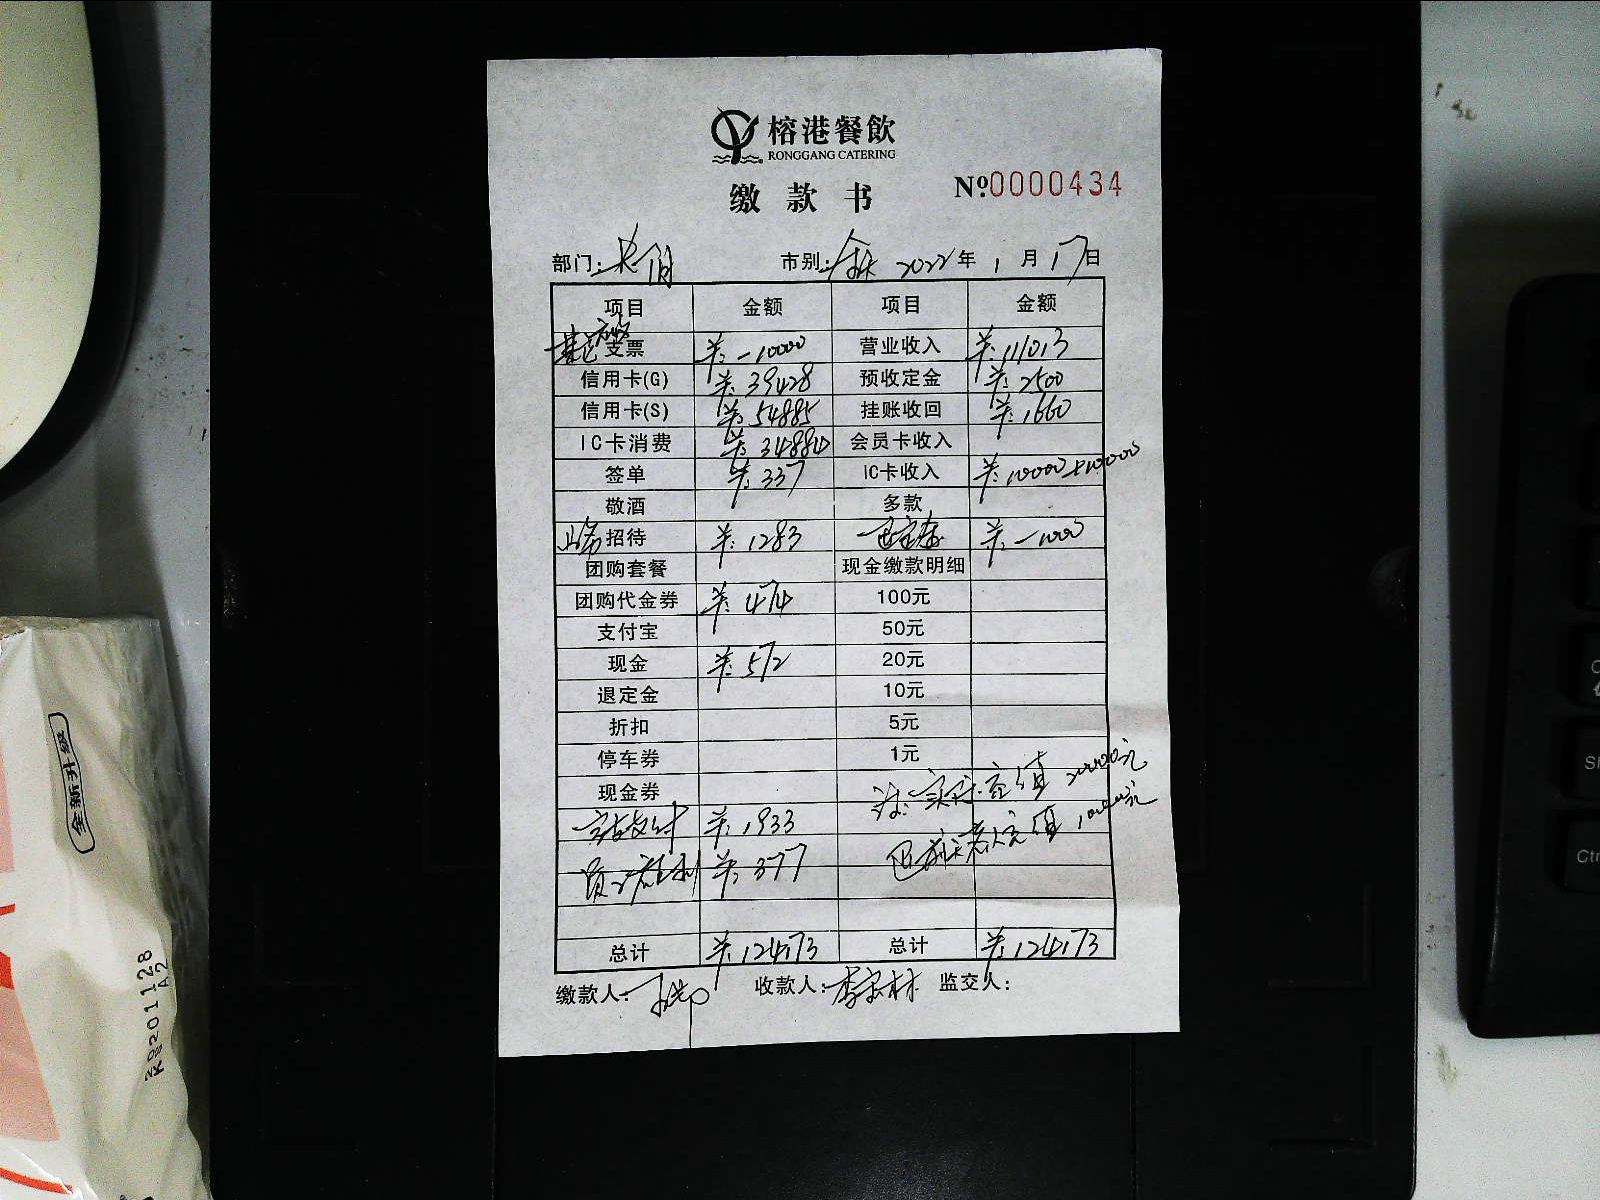 榕港餐飲
RONGGANG CATERING
缴款书
Nº0000434
部门: 市别: 2022年 1月17日
项目 金额 项目 金额
支票 ¥:-10000 营业收入 ¥:111013
信用卡(G) ¥:39428 预收定金 ¥:2500
信用卡(S) ¥:54885 挂账收回 ¥:1660
IC卡消费 ¥:34884 会员卡收入
签单 ¥:337 IC卡收入 ¥:10000+10000
敬酒 多款
招待 ¥:1283 ¥:-1000
团购套餐 现金缴款明细
团购代金券 ¥:474 100元
支付宝 50元
现金 ¥:572 20元
退定金 10元
折扣 5元
停车券 1元
现金券
注:实际充值20000元
¥:1933
充值10000元
¥:377
总计 ¥:124173 总计 ¥:124173
缴款人: 收款人: 监交人:
全新升级
K8201128
A2